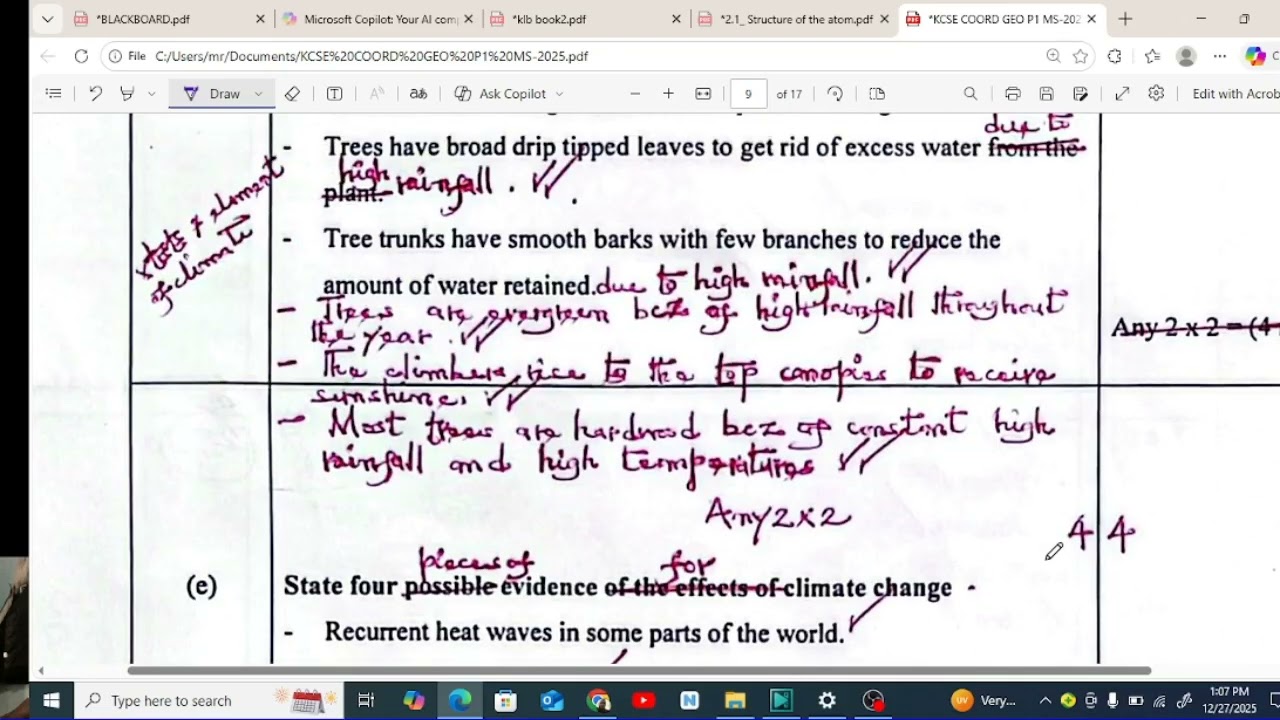 *BLACKBOARD.pdf
Microsoft Copilot: Your AI comp
*klb book2.pdf
*2.1_ Structure of the atom.pdf
*KCSE COORD GEO P1 MS-202
File C:/Users/mr/Documents/KCSE%20COORD%20GEO%20P1%20MS-2025.pdf
Draw
Ask Copilot
9 of 17
Edit with Acrob
due to
- Trees have broad drip tipped leaves to get rid of excess water from the
high
plant. rainfall.
- Tree trunks have smooth barks with few branches to reduce the
amount of water retained. due to high rainfall.
- Trees are evergreen bcz of high rainfall throughout
the year.
Any 2 x 2 = (4
- The climbers rise to the top canopies to receive
sunshine.
- Most trees are hardwood bcz of constant high
rainfall and high temperatures
Any 2x2
4 4
pieces of for
(e) State four possible evidence of the effects of climate change -
- Recurrent heat waves in some parts of the world.
Type here to search
Very...
1:07 PM
12/27/2025